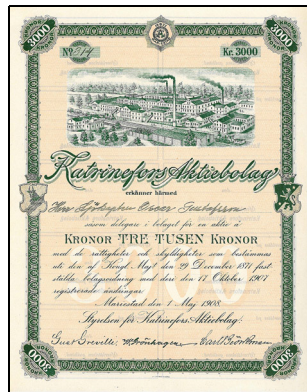 3000 3000
No 214 Kr. 3000
Katrinefors Aktiebolag
erkänner härmed
Herr Oscar Gustafsson
såsom delegare i bolaget för en aktie à
KRONOR TRE TUSEN KRONOR
med de rättigheter och skyldigheter som bestämmas
uti den af Kongl. Maj:t den 29 December 1871 fast-
stälda bolagsordning med dera den 17 Oktober 1907
registrerade ändringar.
Mariestad den 1 Maj 1908.
Styrelsen för Katrinefors Aktiebolag:
3000 3000